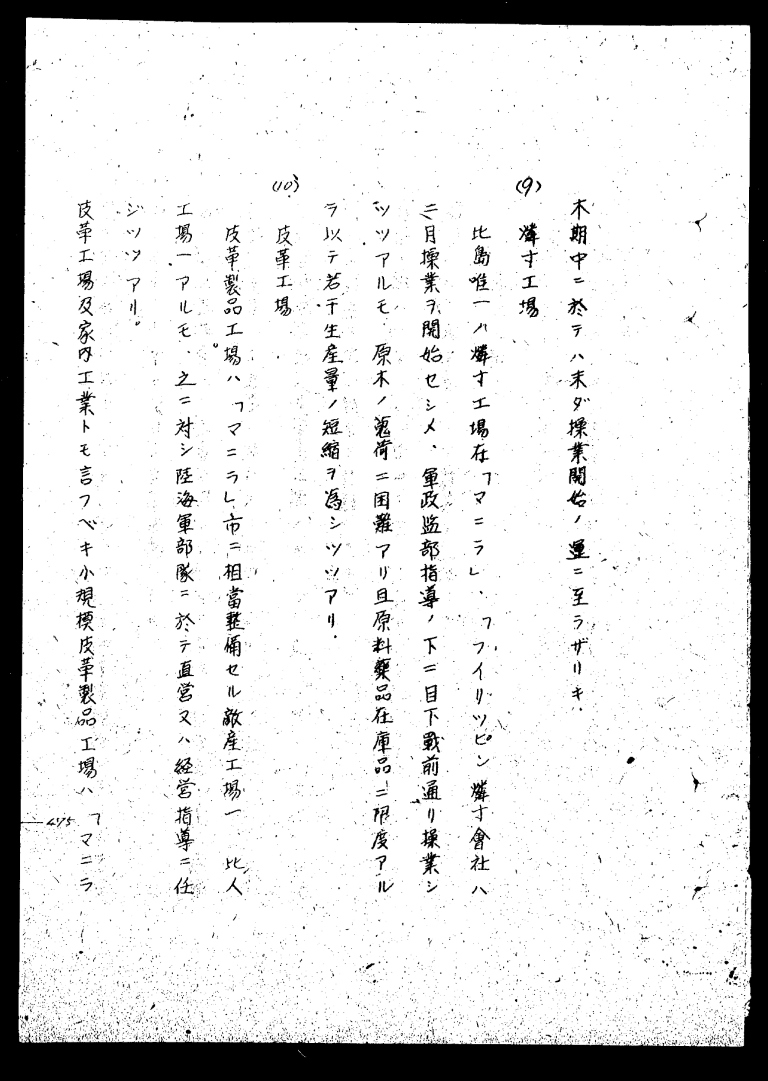 本期中ニ於テハ未ダ操業開始ノ運ニ至ラザリキ.
(9) 燐寸工場
比島唯一ノ燐寸工場在「マニラ」、「フイリツピン燐寸會社ハ
二月操業ヲ開始セシメ、軍政監部指導ノ下ニ目下戰前通リ操業シ
ツツアルモ、原木ノ蒐荷ニ困難アリ且原料藥品在庫品ニ限度アル
ヲ以テ若干生産量ノ短縮ヲ為シツツアリ.
(10) 皮革工場
皮革製品工場ハ「マニラ」市ニ相當整備セル敵産工場一、比人
工場一アルモ、之ニ対シ陸海軍部隊ニ於テ直営又ハ経営指導ニ任
ジツツアリ。
皮革工場及家内工業トモ言フベキ小規模皮革製品工場ハ「マニラ
475